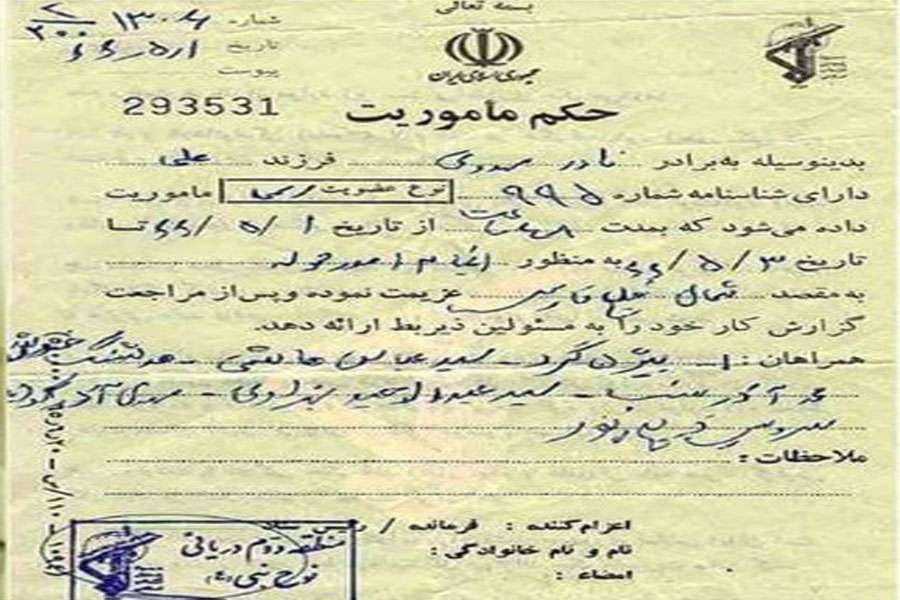 بسمه تعالی
شماره ۱۳۰۶
تاریخ ۱/۵/۶۶
پیوست
جمهوری اسلامی ایران
293531
حکم ماموریت
بدینوسیله به برادر نادر مهدوی فرزند علی
دارای شناسنامه شماره ۹۹۵ نوع عضویت رسمی ماموریت
داده می‌شود که بمدت ۴۸ ساعت از تاریخ ۱/۵/۶۶ تا
تاریخ ۳/۵/۶۶ به منظور انجام امور محوله
به مقصد شمال خلیج فارس عزیمت نموده و پس از مراجعت
گزارش کار خود را به مسئولین ذیربط ارائه دهد.
همراهان: ۱- بیژن گرد - سید عباس هاشمی -
- سید عبدالوحید - مهدی
ملاحظات:
اعزام‌کننده: فرمانده / رئیس
نام و نام خانوادگی:
امضاء:
منطقه دوم دریائی
نوح نبی (ع)